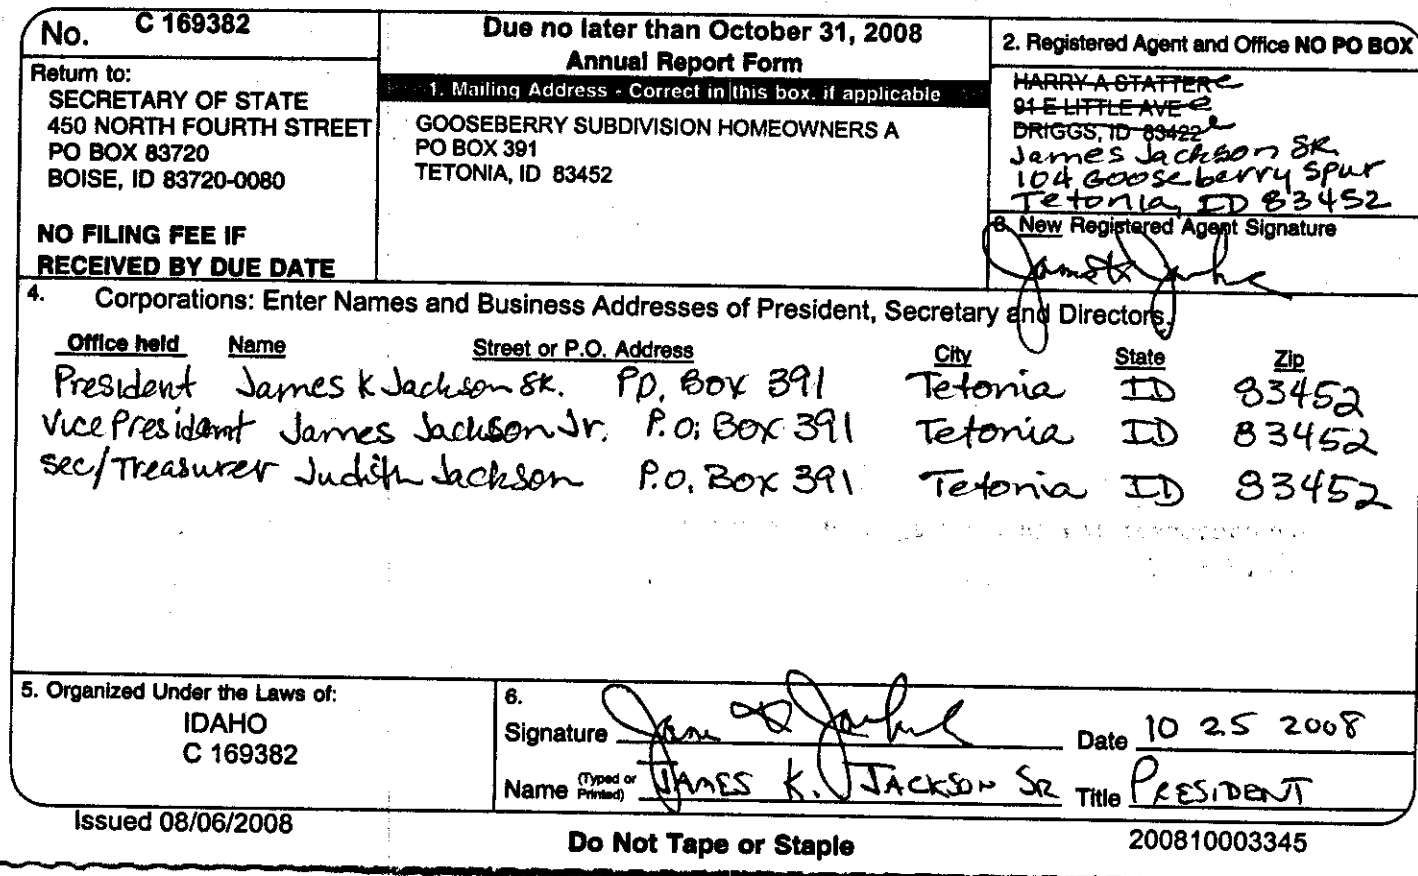 No. C 169382
Return to:
SECRETARY OF STATE
450 NORTH FOURTH STREET
PO BOX 83720
BOISE, ID 83720-0080
NO FILING FEE IF
RECEIVED BY DUE DATE
Due no later than October 31, 2008
Annual Report Form
1. Mailing Address - Correct in this box, if applicable
GOOSEBERRY SUBDIVISION HOMEOWNERS A
PO BOX 391
TETONIA, ID 83452
2. Registered Agent and Office NO PO BOX
HARRY A STATTER
91 E LITTLE AVE
DRIGGS, ID 83422
James Jackson SR.
104 Gooseberry Spur
Tetonia, ID 83452
3. New Registered Agent Signature
4. Corporations: Enter Names and Business Addresses of President, Secretary and Directors.
Office held Name Street or P.O. Address City State Zip
President James K Jackson SR. P.O. Box 391 Tetonia ID 83452
Vice President James Jackson Jr. P.O. Box 391 Tetonia ID 83452
Sec/Treasurer Judith Jackson P.O. Box 391 Tetonia ID 83452
5. Organized Under the Laws of:
IDAHO
C 169382
6.
Signature Date 10 25 2008
Name (Typed or Printed) JAMES K. JACKSON SR Title PRESIDENT
Issued 08/06/2008
Do Not Tape or Staple
200810003345